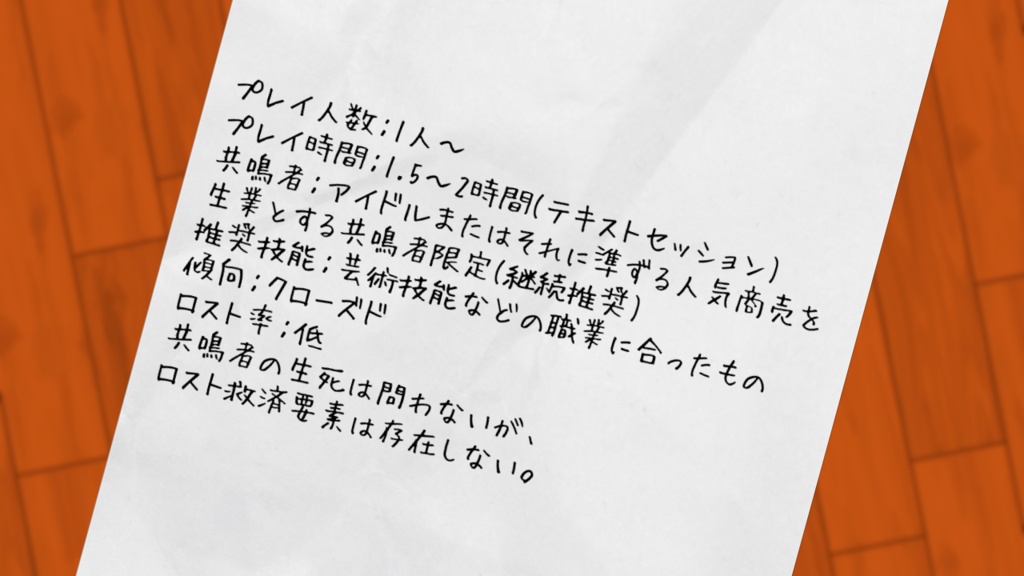 プレイ人数:1人～
プレイ時間:1.5～2時間(テキストセッション)
共鳴者:アイドルまたはそれに準ずる人気商売を
生業とする共鳴者限定(継続推奨)
推奨技能:芸術技能などの職業に合ったもの
傾向:クローズド
ロスト率:低
共鳴者の生死は問わないが、
ロスト救済要素は存在しない。